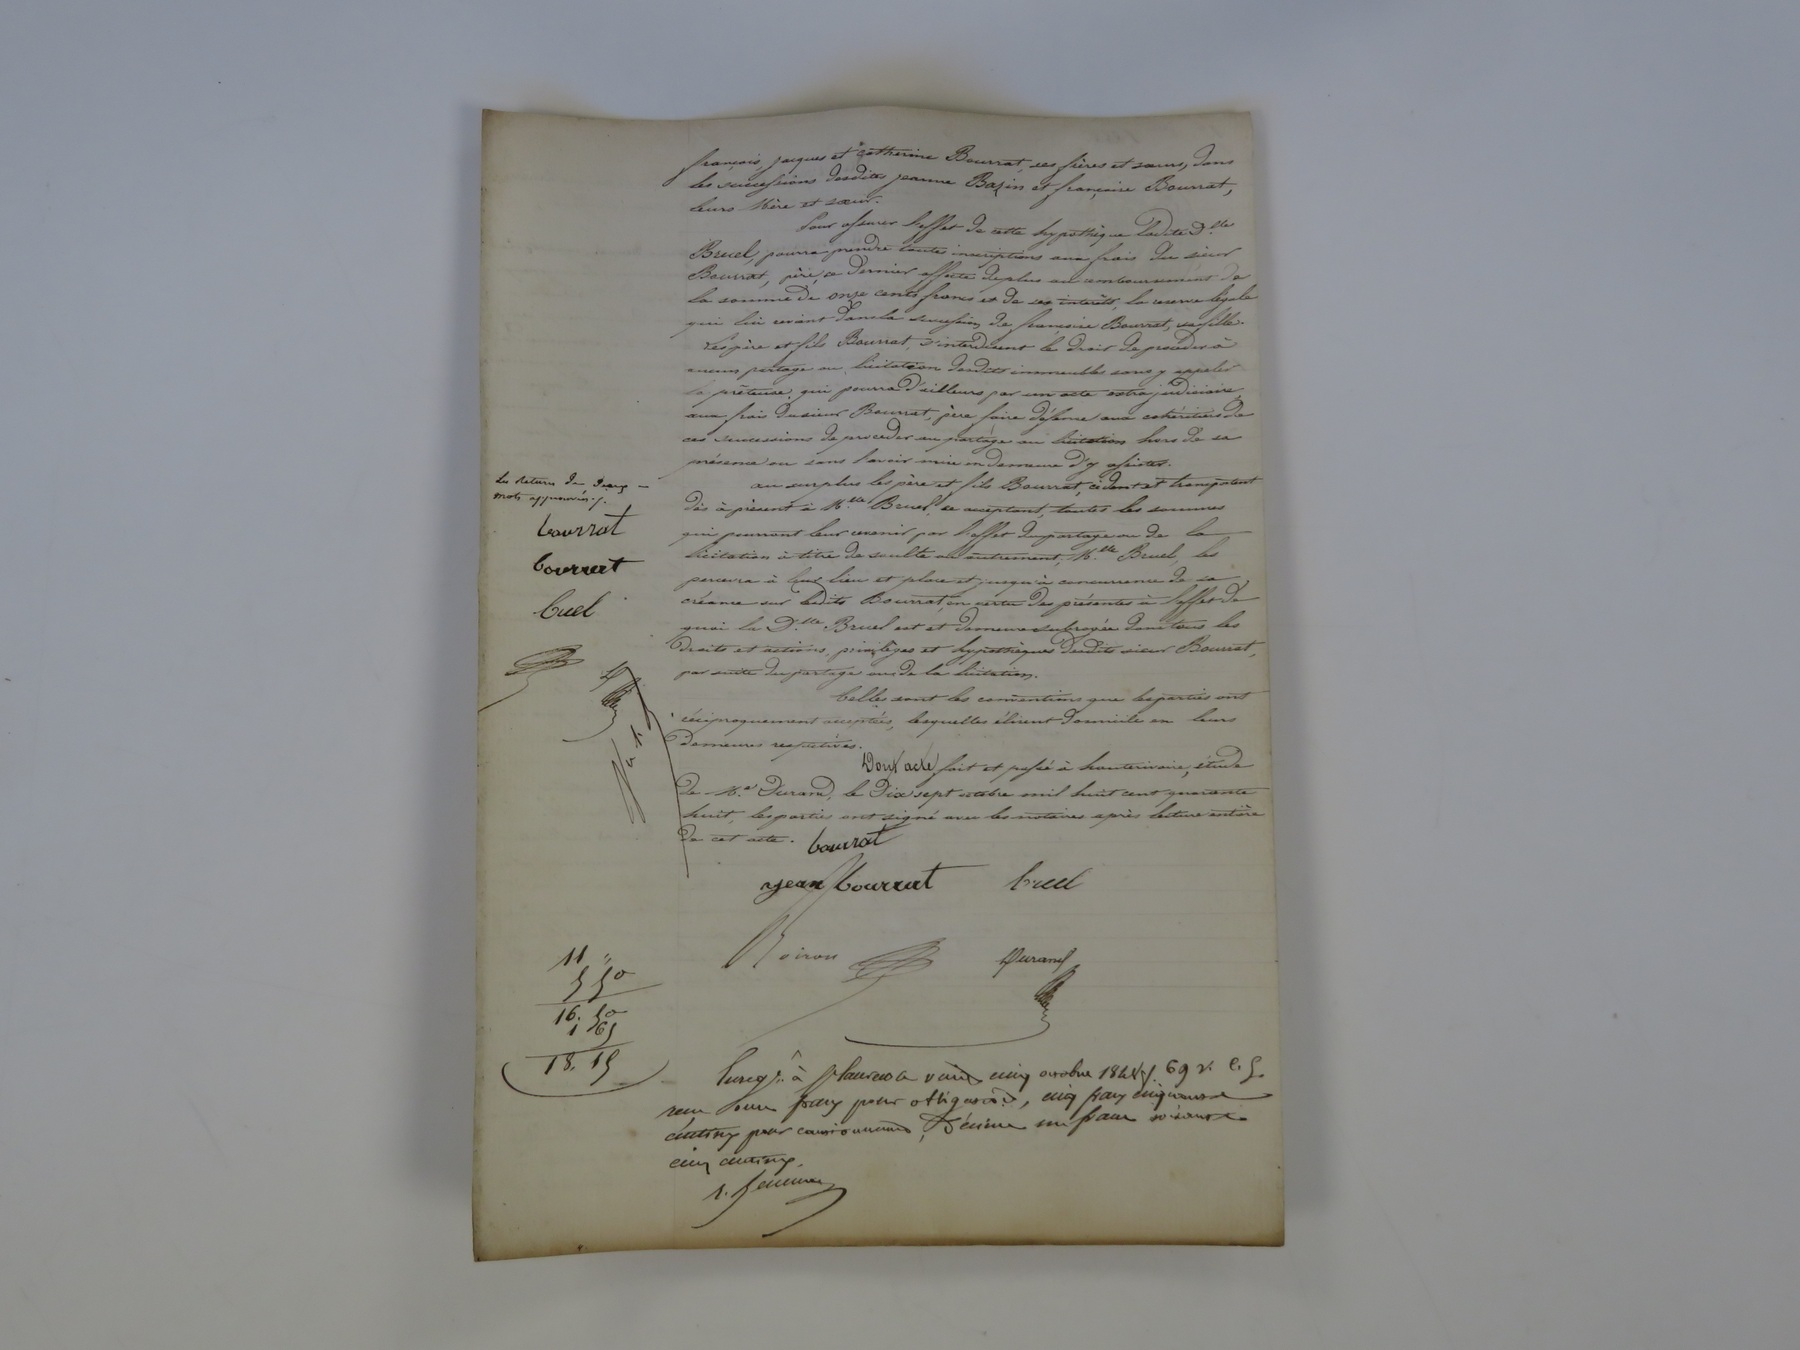 françois, jacques et catherine Bourrat, ses frères et sœurs, dans
les successions desdites jeanne Bazin et françoise Bourrat,
leurs Mère et sœur.
Pour assurer l'effet de cette hypothèque ladite D.lle
Bruel, pourra prendre toutes inscriptions aux frais du sieur
Bourrat, père, ce dernier affecte de plus au remboursement de
la somme de onze cents francs et de ses intérêts, la reserve légale
qui lui revient dans la succession de françoise Bourrat, sa fille.
Les père et fils Bourrat, s'interdisent le droit de procéder à
aucun partage ou licitation desdits immeubles sans y appeler
la prêteuse, qui pourra d'ailleurs par un acte extrajudiciaire,
aux frais du sieur Bourrat, père faire défense aux cohéritiers de
ces successions de procéder au partage ou licitation hors de sa
présence ou sans l'avoir mise en demeure d'y assister.
au surplus les père et fils Bourrat, cèdent et transportent
dès à présent à M.lle Bruel, ce acceptant, toutes les sommes
qui pourront leur revenir par l'effet du partage ou de la
licitation à titre de soulte ou autrement, M.lle Bruel, les
percevra à leur lieu et place et jusqu'à concurrence de sa
créance sur lesdits Bourrat, en vertu des présentes à l'effet de
quoi la D.lle Bruel est et demeure subrogée dans tous les
droits et actions, privilèges et hypothèques desdits sieur Bourrat,
par suite du partage ou de la licitation.
Telles sont les conventions que les parties ont
réciproquement acceptées, lesquelles élirent domicile en leurs
demeures respectives.
Dont acte, fait et passé à hauterivoire, étude
de M.e Durand, le Dix sept octobre mil huit cent quarante
huit, les parties ont signé avec les notaires après lecture entière
de cet acte.
bourrat
jean bourrat bruel
Boiron Durand
Les ratures de deux
mots approuvées.
bourrat
bourrat
bruel
11 "
5 50
16. 50
1 65
18. 15
Enreg.é à St Laurent le vingt cinq octobre 1848 f. 69 v. c. 5.
reçu onze francs pour obligation, cinq francs cinquante
centimes pour cautionnement, Décime un franc soixante
cinq centimes.